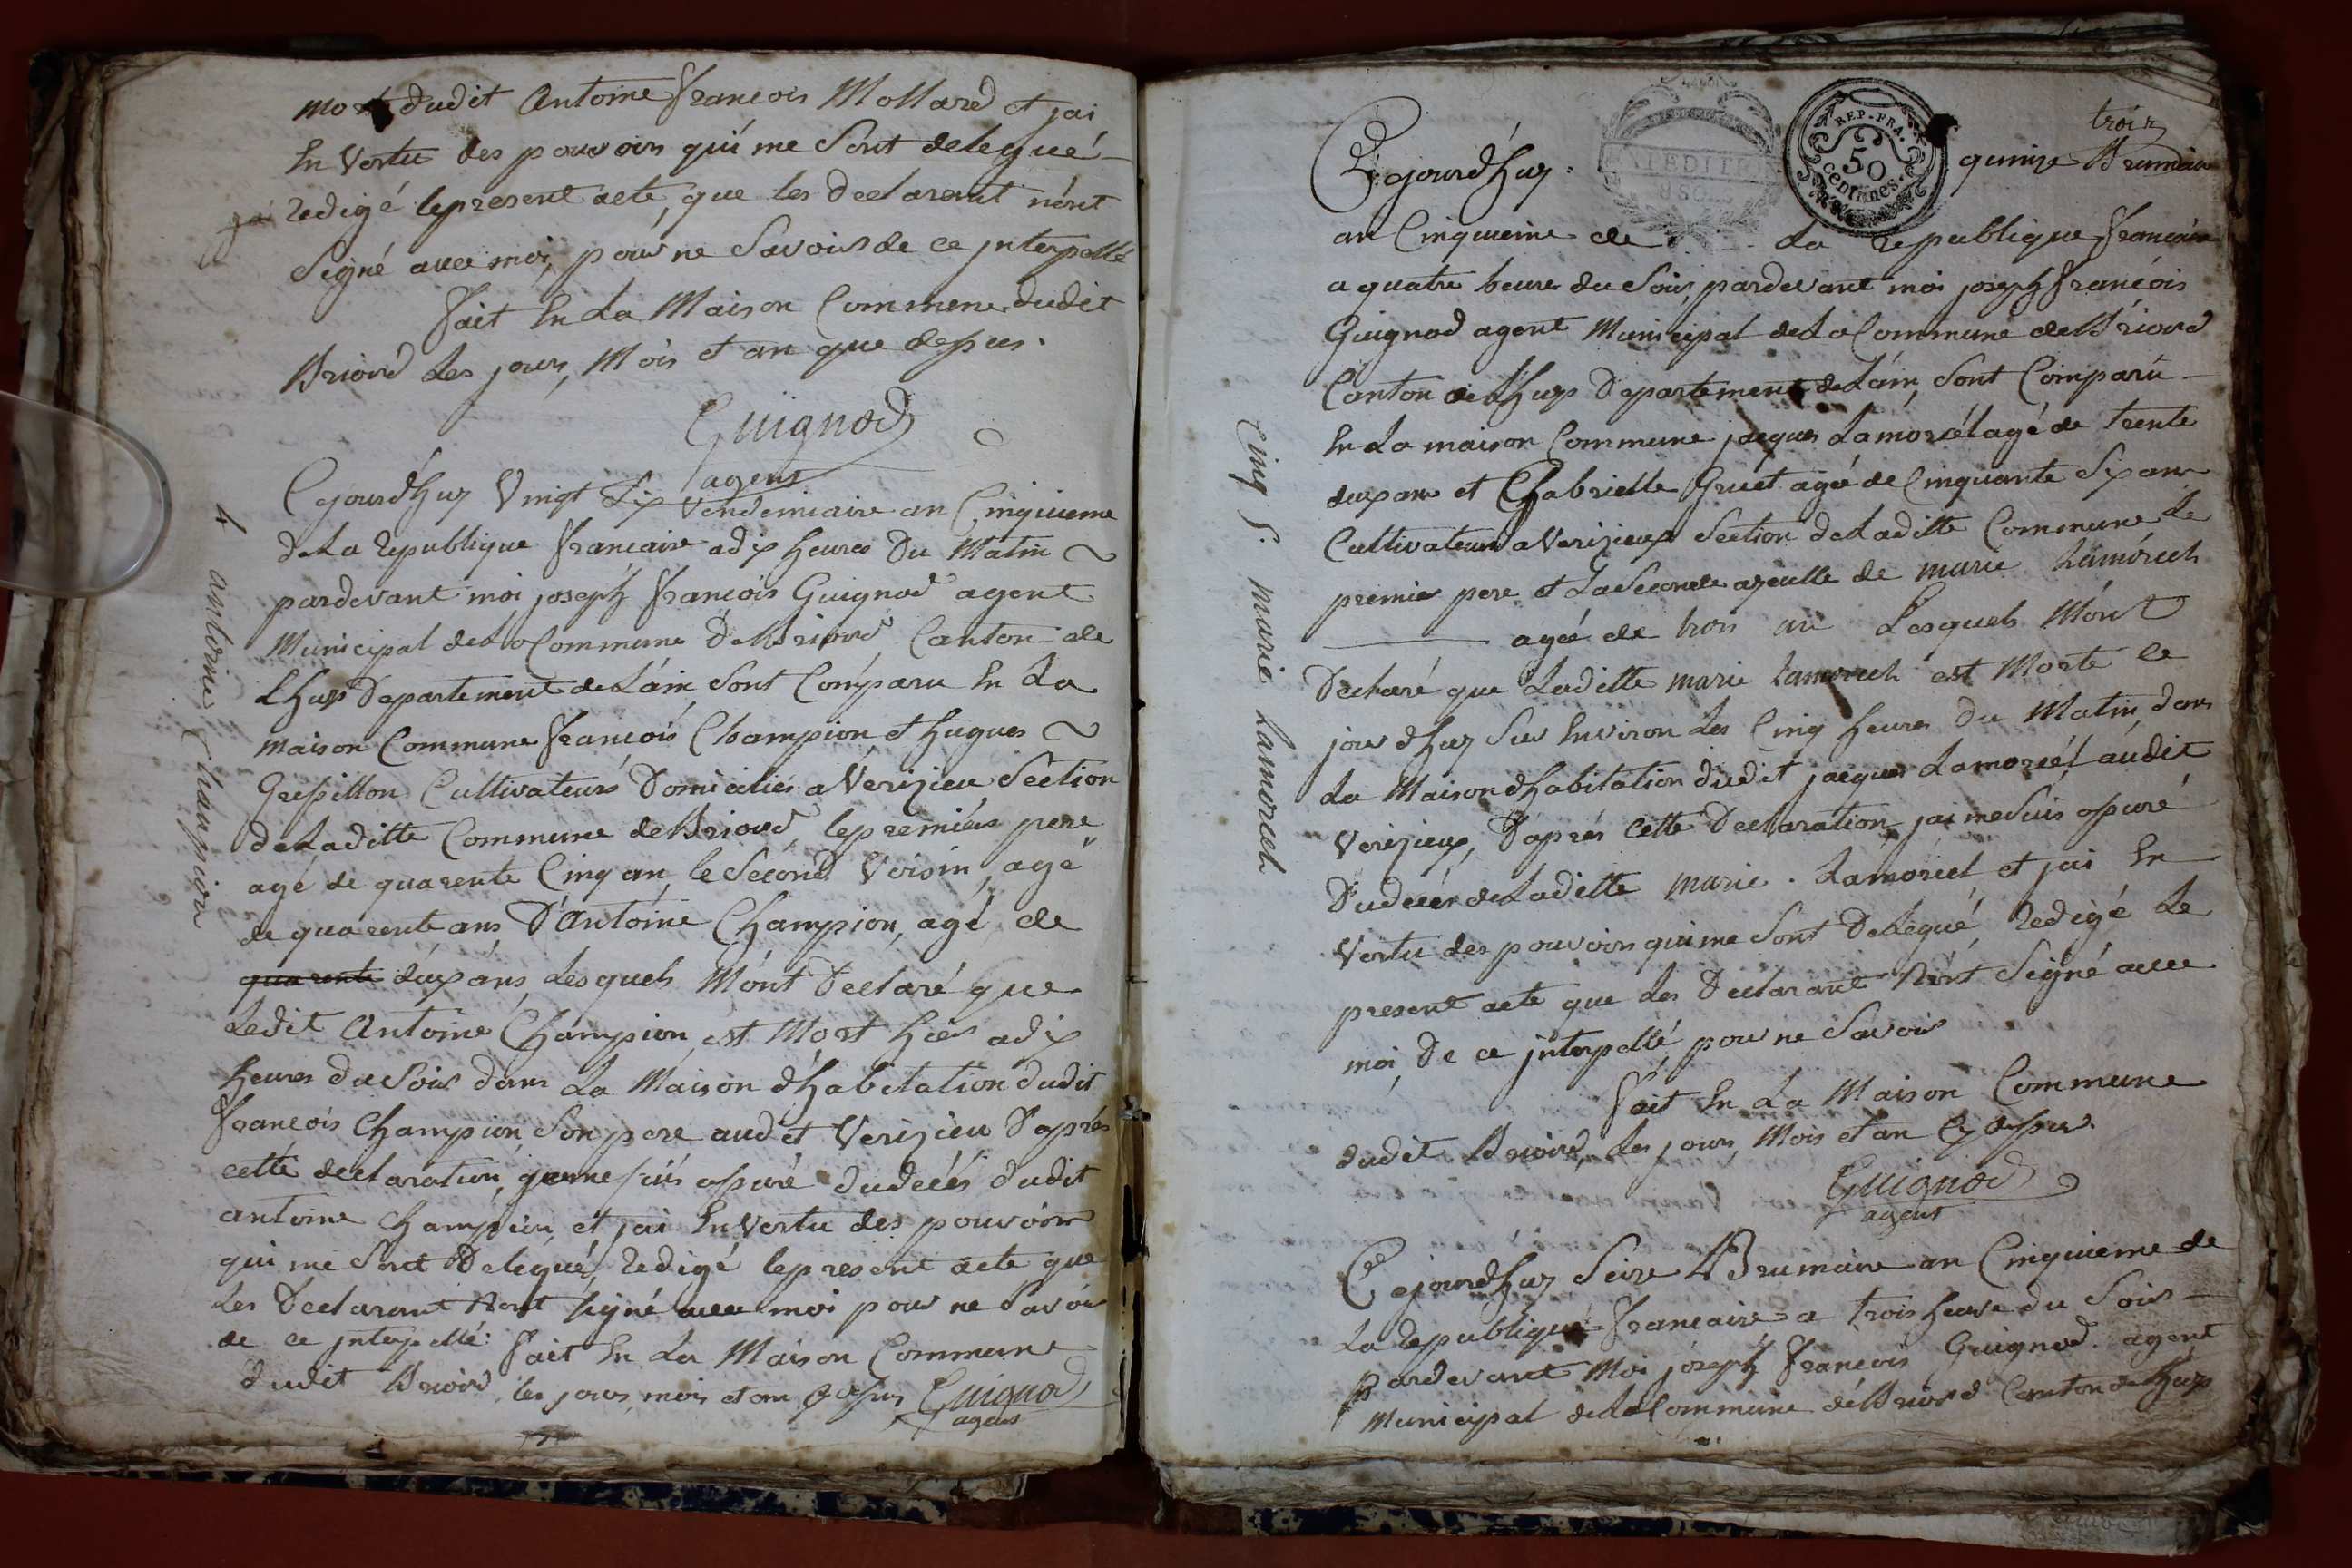 mort dudit Antoine francois Mollard et jai
En Vertu des pouvoirs qui me Sont delegué
redigé lepresent acte, que les declarant nént
Signé avec moi, pour ne Savoir de ce jnterpellé
fait En La Maison Commune dudit
Briord Les jours, Mois et an que dessus.
Guignod
agent
4 antoine Champion
Cejourdhuy Vingt Six Vendemiaire an Cinquieme
deLa republique francaise adix heures Du Matin
pardevant moi joseph francois Guignod agent
Municipal deLa Commune DeBriord Canton de
Lhuis Departement deLain Sont Comparu En La
maison Commune francois Champion et hugues
Grepillon Cultivateurs Domiciliés a Verizieu Section
deLaditte Commune deBriord lepremiers pere
agé de quarente Cinq an, le Second Voisin, agé
de quarente ans D'Antoine Champion, agé de
quarente deux ans Lesquels Mónt Declaré que
Ledit Antoine Champion est Mort hier adix
heures du Soir dans La Maison d'habitation dudit
francois Champion Son pere audit Verizieu D'aprés
cette declaration, jemesuis assuré dudecés dudit
antoine Champion et jai En Vertu des pouvoirs
qui me Sont Delégué, redigé lepresent acte que
Les Declarant Nont signé avec moi pour ne Savoir
de ce jnterpellé: fait En La Maison Commune
dudit Briord, les jours mois et an Dessus Guignod
agent
REP. FRA.
50
centimes.
trois
Cejourdhuy quinze Brumaire
an Cinquieme de La republique francaise
a quatre heure du Soir, pardevant moi joseph francois
Guignod agent Municipal deLa Commune deBriord
Canton de Lhuis Departement deLain, Sont Comparu
En La maison Commune jacques Lamorcél agé de trente
deux ans et Chabrielle Gruet agée de Cinquante Six ans
Cultivateurs a Verizieux Section deLaditte Commune Le
premier pere et LaSeconde ayeulle de marie Lamórcel
agée de trois an Lesquels Mónt
Declaré que Laditte marie Lamorcel est Morte ce
jourdhuy Sur Environ Les Cinq heures Du Matin, dans
La Maison dhabitation dudit jacques Lamorcél audit
Verizieux, D'aprés Cette Declaration, jai meSuis assuré
Dudecér deLaditte marie. Lamorcel et jai En
Vertu des pouvoirs qui me Sont Delegué, redigé Le
present acte que Les Declarant Nónt Signé avec
moi, De ce jnterpellé, pour ne Savoir
fait En La Maison Commune
dudit Briord, Les jours, Mois et an Cy dessus.
Guignod
agent
Cinq S. marie Lamorcel
Cejourdhuy Seize Brumaire an Cinquieme de
La republique francaise a trois heure du Soir
pardevant Moi joseph francois Guignod. agent
Municipal deLaCommune déBriord Canton de Lhuis